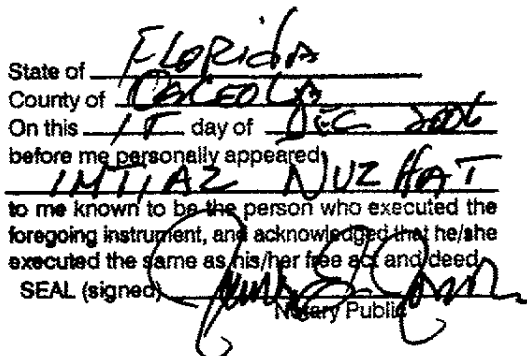 State of Florida
County of Osceola
On this 15 day of DEC 2006
before me personally appeared
IMTIAZ NUZHAT
to me known to be the person who executed the
foregoing instrument, and acknowledged that he/she
executed the same as his/her free act and deed
SEAL (signed)
Notary Public